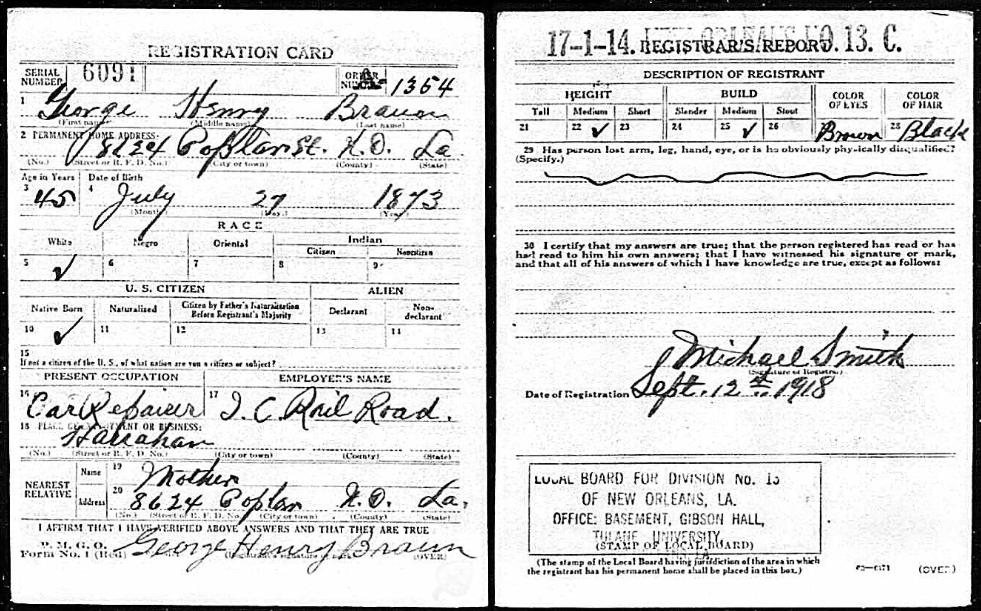 REGISTRATION CARD
SERIAL NUMBER 6091 ORDER NUMBER A 1354
1 George Henry Braun
(First name) (Middle name) (Last name)
2 PERMANENT HOME ADDRESS:
8624 Poplar St. N.O. La
(No.) (Street or R. F. D. No.) (City or town) (County) (State)
Age in Years Date of Birth
3 45 4 July 27 1873
(Month.) (Day.) (Year.)
RACE
White Negro Oriental Indian
Citizen Noncitizen
5 ✓ 6 7 8 9
U. S. CITIZEN ALIEN
Native Born Naturalized Citizen by Father's Naturalization Before Registrant's Majority Declarant Non-declarant
10 ✓ 11 12 13 14
15
If not a citizen of the U. S., of what nation are you a citizen or subject?
PRESENT OCCUPATION EMPLOYER'S NAME
16 Car Repairer 17 I. C. Rail Road.
18 PLACE OF EMPLOYMENT OR BUSINESS:
Harrahan
(No.) (Street or R. F. D. No.) (City or town) (County) (State)
NEAREST RELATIVE Name 19 Mother
Address 20 8624 Poplar N.O. La.
(No.) (Street or R. F. D. No.) (City or town) (County) (State)
I AFFIRM THAT I HAVE VERIFIED ABOVE ANSWERS AND THAT THEY ARE TRUE
P. M. G. O.
Form No. 1 (Red) George Henry Braun (OVER)
17-1-14. REGISTRAR'S REPORT NEW ORLEANS NO. 13. C.
DESCRIPTION OF REGISTRANT
HEIGHT BUILD COLOR OF EYES COLOR OF HAIR
Tall Medium Short Slender Medium Stout
21 22 ✓ 23 24 25 ✓ 26 27 Brown 28 Black
29 Has person lost arm, leg, hand, eye, or is he obviously physically disqualified?
(Specify.)
30 I certify that my answers are true; that the person registered has read or has
had read to him his own answers; that I have witnessed his signature or mark,
and that all of his answers of which I have knowledge are true, except as follows:
J Michael Smith
(Signature of Registrar)
Date of Registration Sept. 12th 1918
LOCAL BOARD FOR DIVISION No. 13
OF NEW ORLEANS, LA.
OFFICE: BASEMENT, GIBSON HALL,
TULANE UNIVERSITY.
(STAMP OF LOCAL BOARD)
(The stamp of the Local Board having jurisdiction of the area in which
the registrant has his permanent home shall be placed in this box.)
(OVER)